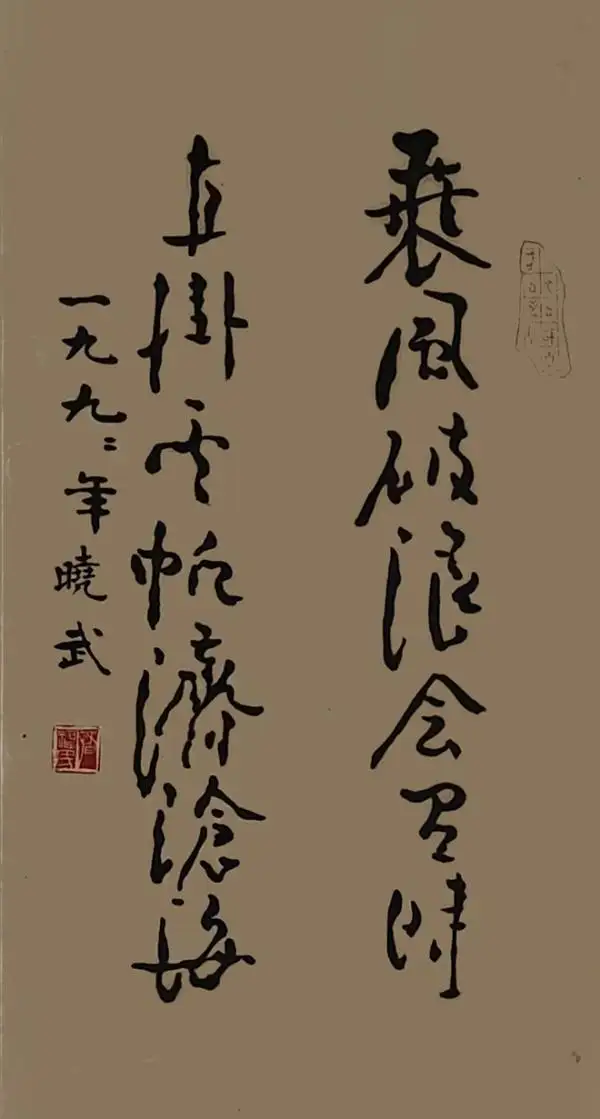 乘風破浪会有時
直掛雲帆濟滄海
一九九二年曉武